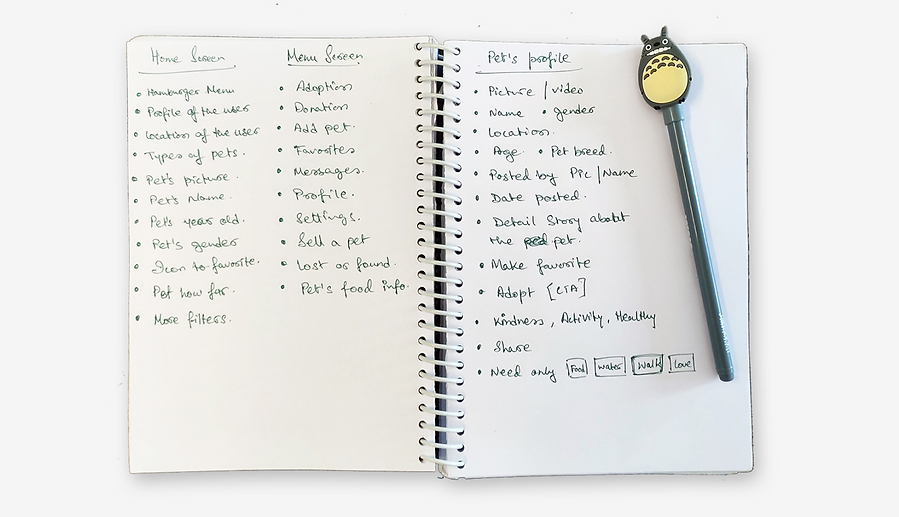 Home Screen
• Hamburger Menu
• Profile of the user
• Location of the user
• Types of pets.
• Pet's picture.
• Pet's Name.
• Pet's year old.
• Pet's gender
• Icon to favorite.
• Pet how far.
• More filters.
Menu Screen
• Adoption
• Donation
• Add pet.
• Favorites
• Messages.
• Profile.
• Settings.
• Sell a pet
• Lost or found.
• Pet's food info.
Pet's profile
• Picture / video
• Name • gender
• Location.
• Age. • Pet breed.
• Posted by Pic / Name
• Date posted.
• Detail Story about
the pet.
• Make favorite
• Adopt [CTA]
• Kindness, Activity, Healthy
• Share
• Need only Food Water Walk Love